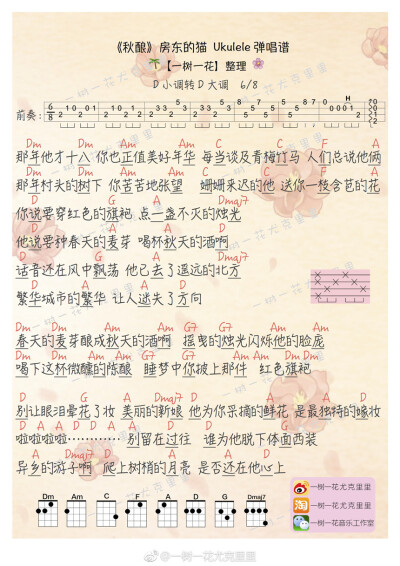 《秋酿》房东的猫 Ukulele 弹唱谱
【一树一花】整理
D小调转D大调 6/8
前奏:
Dm Am Dm Am F C F A
那年他才十八 你也正值美好年华 每当谈及青梅竹马 人们总说他俩
那年村头的树下 你苦苦地张望 姗姗来迟的他 送你一枝含苞的花
你说要穿红色的旗袍 点一盏不灭的烛光
他说要种春天的麦芽 喝杯秋天的酒啊
话音还在风中飘荡 他已去了遥远的北方
繁华城市的繁华 让人迷失了方向
春天的麦芽酿成秋天的酒啊 摇曳的烛光闪烁他的脸庞
喝下这杯微醺的陈酿 睡梦中你披上那件 红色旗袍
别让眼泪晕花了妆 美丽的新娘 他为你采摘的鲜花 是最独特的嫁妆
啦啦啦啦………… 别留在过往 谁为他脱下体面西装
异乡的游子啊 爬上树梢的月亮 是否还在他心上
Dm Am C F A D G Dmaj7
一树一花尤克里里
一树一花尤克里里
一树一花音乐工作室
@一树一花尤克里里